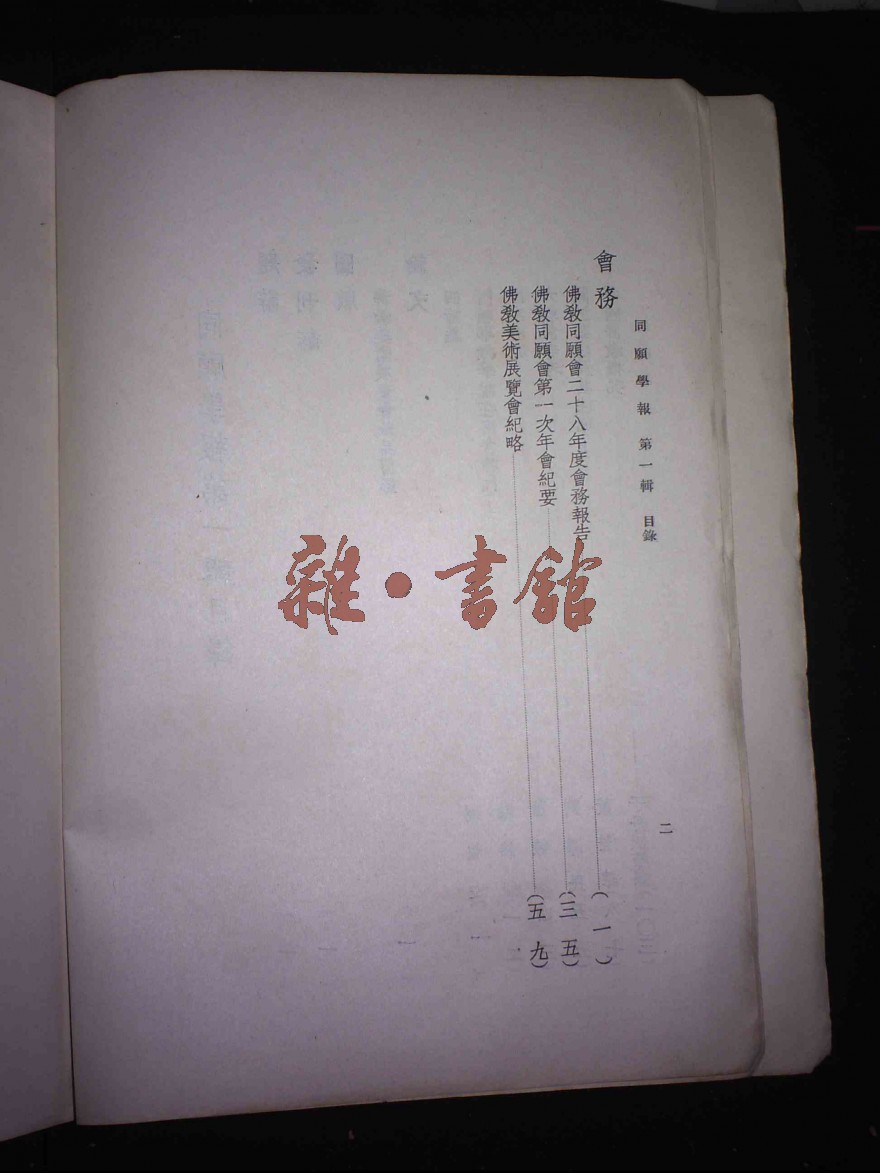 同願學報 第一輯 目錄
二
會務
佛敎同願會二十八年度會務報告……(一)
佛敎同願會第一次年會紀要……(三五)
佛敎美術展覽會紀略……(五九)
雜·書館